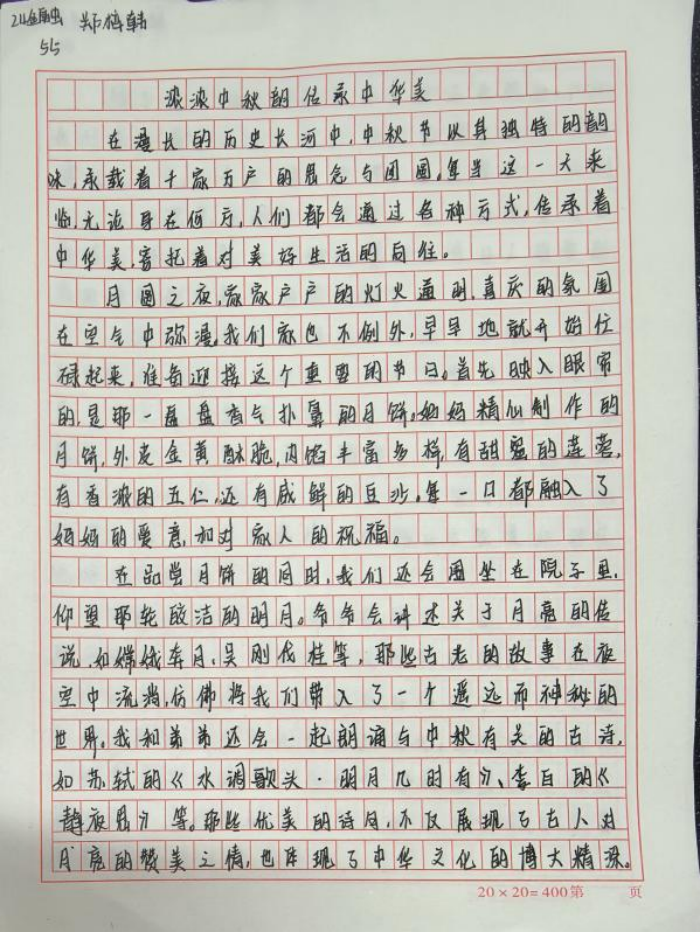 21金融 郑梅韩
55
浓浓中秋韵 传承中华美
在漫长的历史长河中,中秋节以其独特的韵
味,承载着千家万户的思念与团圆,每当这一天来
临,无论身在何方,人们都会通过各种方式,传承着
中华美,寄托着对美好生活的向往。
月圆之夜,家家户户的灯火通明,喜庆的氛围
在空气中弥漫,我们家也不例外,早早地就开始忙
碌起来,准备迎接这个重要的节日。首先映入眼帘
的,是那一盘盘香气扑鼻的月饼,妈妈精心制作的
月饼,外皮金黄酥脆,内馅丰富多样,有甜蜜的莲蓉,
有香浓的五仁,还有咸鲜的豆沙,每一口都融入了
妈妈的爱意,和对家人的祝福。
在品尝月饼的同时,我们还会围坐在院子里,
仰望那轮皎洁的明月。爷爷会讲述关于月亮的传
说,如嫦娥奔月、吴刚伐桂等,那些古老的故事在夜
空中流淌,仿佛将我们带入了一个遥远而神秘的
世界。我和弟弟还会一起朗诵与中秋有关的古诗,
如苏轼的《水调歌头·明月几时有》、李白的《
静夜思》等。那些优美的诗句,不仅展现了古人对
月亮的赞美之情,也体现了中华文化的博大精深。
20×20=400第 页